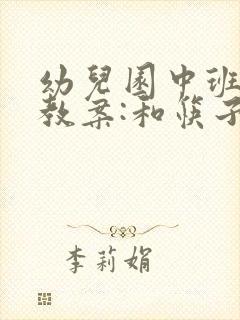 幼兒園中班
教案:和筷子
李莉娟